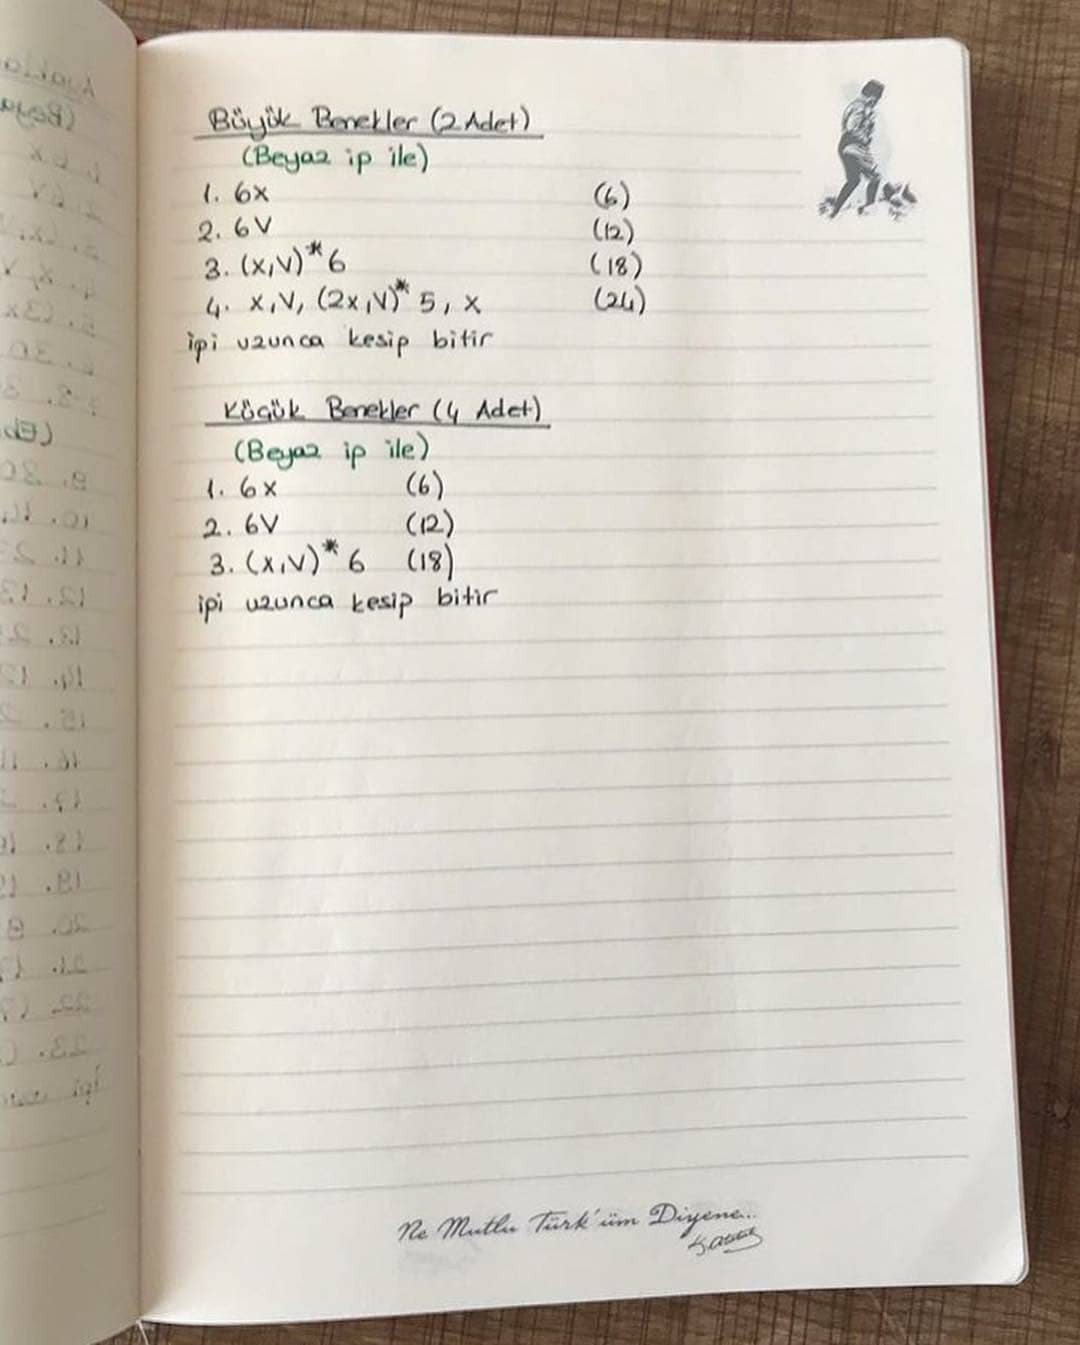 Büyük Benekler (2 Adet)
(Beyaz ip ile)
1. 6x (6)
2. 6V (12)
3. (x,V)*6 (18)
4. x,V, (2x,V)* 5, x (24)
ipi uzunca kesip bitir
Küçük Benekler (4 Adet)
(Beyaz ip ile)
1. 6x (6)
2. 6V (12)
3. (x,V)* 6 (18)
ipi uzunca kesip bitir
Ne Mutlu Türk'üm Diyene...